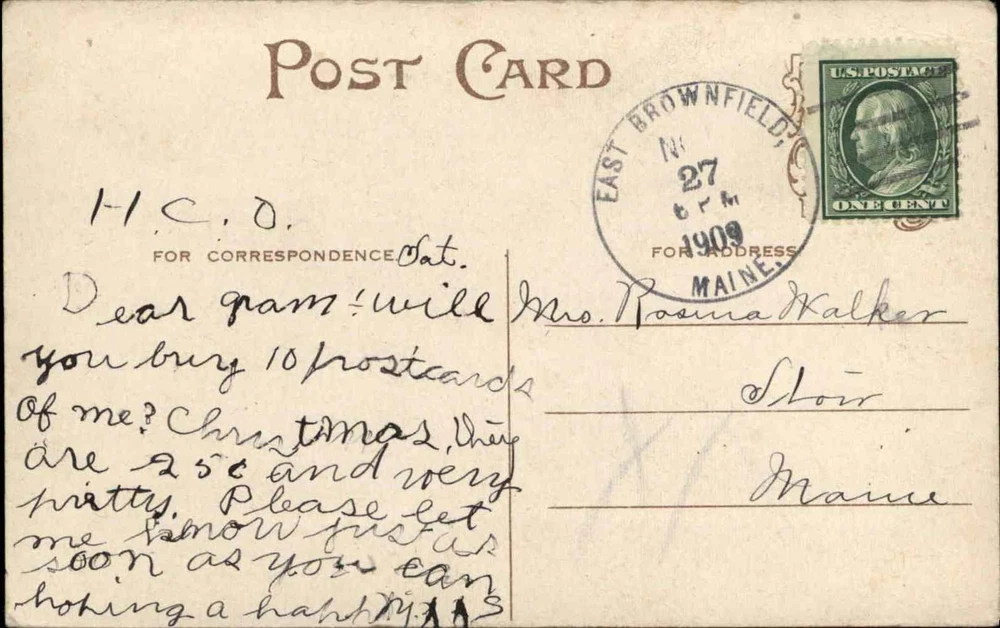 POST CARD
U.S. POSTAGE
ONE CENT
EAST BROWNFIELD,
27
6 PM
1909
MAINE.
H. C. O.
FOR CORRESPONDENCE
FOR ADDRESS
Sat.
Dear gram! will
you buy 10 postcards
of me? Christmas, They
are 25¢ and very
pretty. Please let
me know just as
soon as you can
hoping a happy
Mrs. Rosina Walker
Stow
Maine